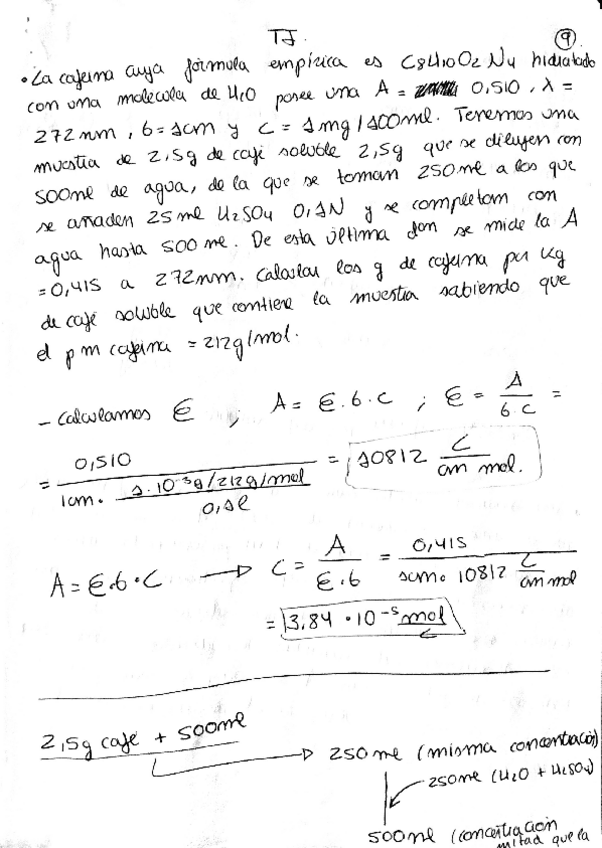 TJ. 9
• La cafeína cuya fórmula empírica es C8H10O2N4 hidratado
con una molécula de H2O posee una A = 0,510, λ =
272 nm, b = 1cm y C = 1mg/100ml. Tenemos una
muestra de 2,5g de café soluble 2,5g que se diluyen con
500ml de agua, de la que se toman 250ml a los que
se añaden 25ml H2SO4 0,1N y se completan con
agua hasta 500 ml. De esta última dson se mide la A
= 0,415 a 272nm. Calcular los g de cafeína por Kg
de café soluble que contiene la muestra sabiendo que
el pm cafeína = 212g/mol.
- Calculamos ∈ ; A = ∈.b.c ; ∈ = A / b.c =
= 0,510 / (1cm. (1.10⁻³g/212g/mol / 0,1l)) = 10812 L / cm mol.
A = ∈.b.c → C = A / ∈.b = 0,415 / (1cm. 10812 L / cm mol)
= 3,84 · 10⁻⁵ mol / L
2,5g café + 500ml
→ 250ml (misma concentración)
250ml (H2O + H2SO4)
500ml (concentración
mitad que la